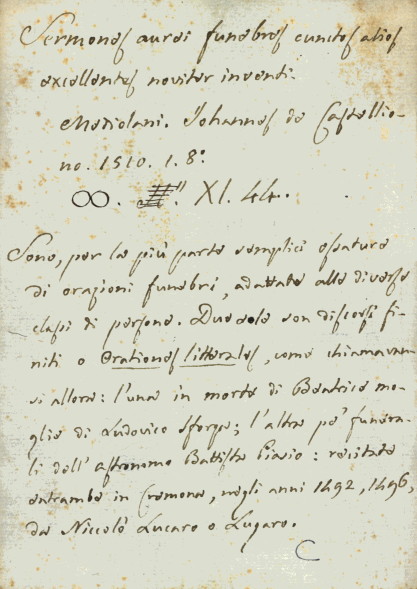 Sermones aurei funebres cunctos alios
excellentes noviter inventi.
Mediolani. Johannes de Castellio-
no. 1510. 1. 8°
XI. 44.
Sono, per la più parte semplici ossature
di orazioni funebri, adattate alle diverse
classi di persone. Due sole son discorsi fi-
niti o Orationes litterales, come chiamavan-
si allora: l'una in morte di Beatrice mo-
glie di Ludovico Sforza; l'altra pe' funera-
li dell'astronomo Battista Piasio: recitate
entrambe in Cremona, negli anni 1492, 1496,
da Niccolò Lucaro o Lugaro.
C